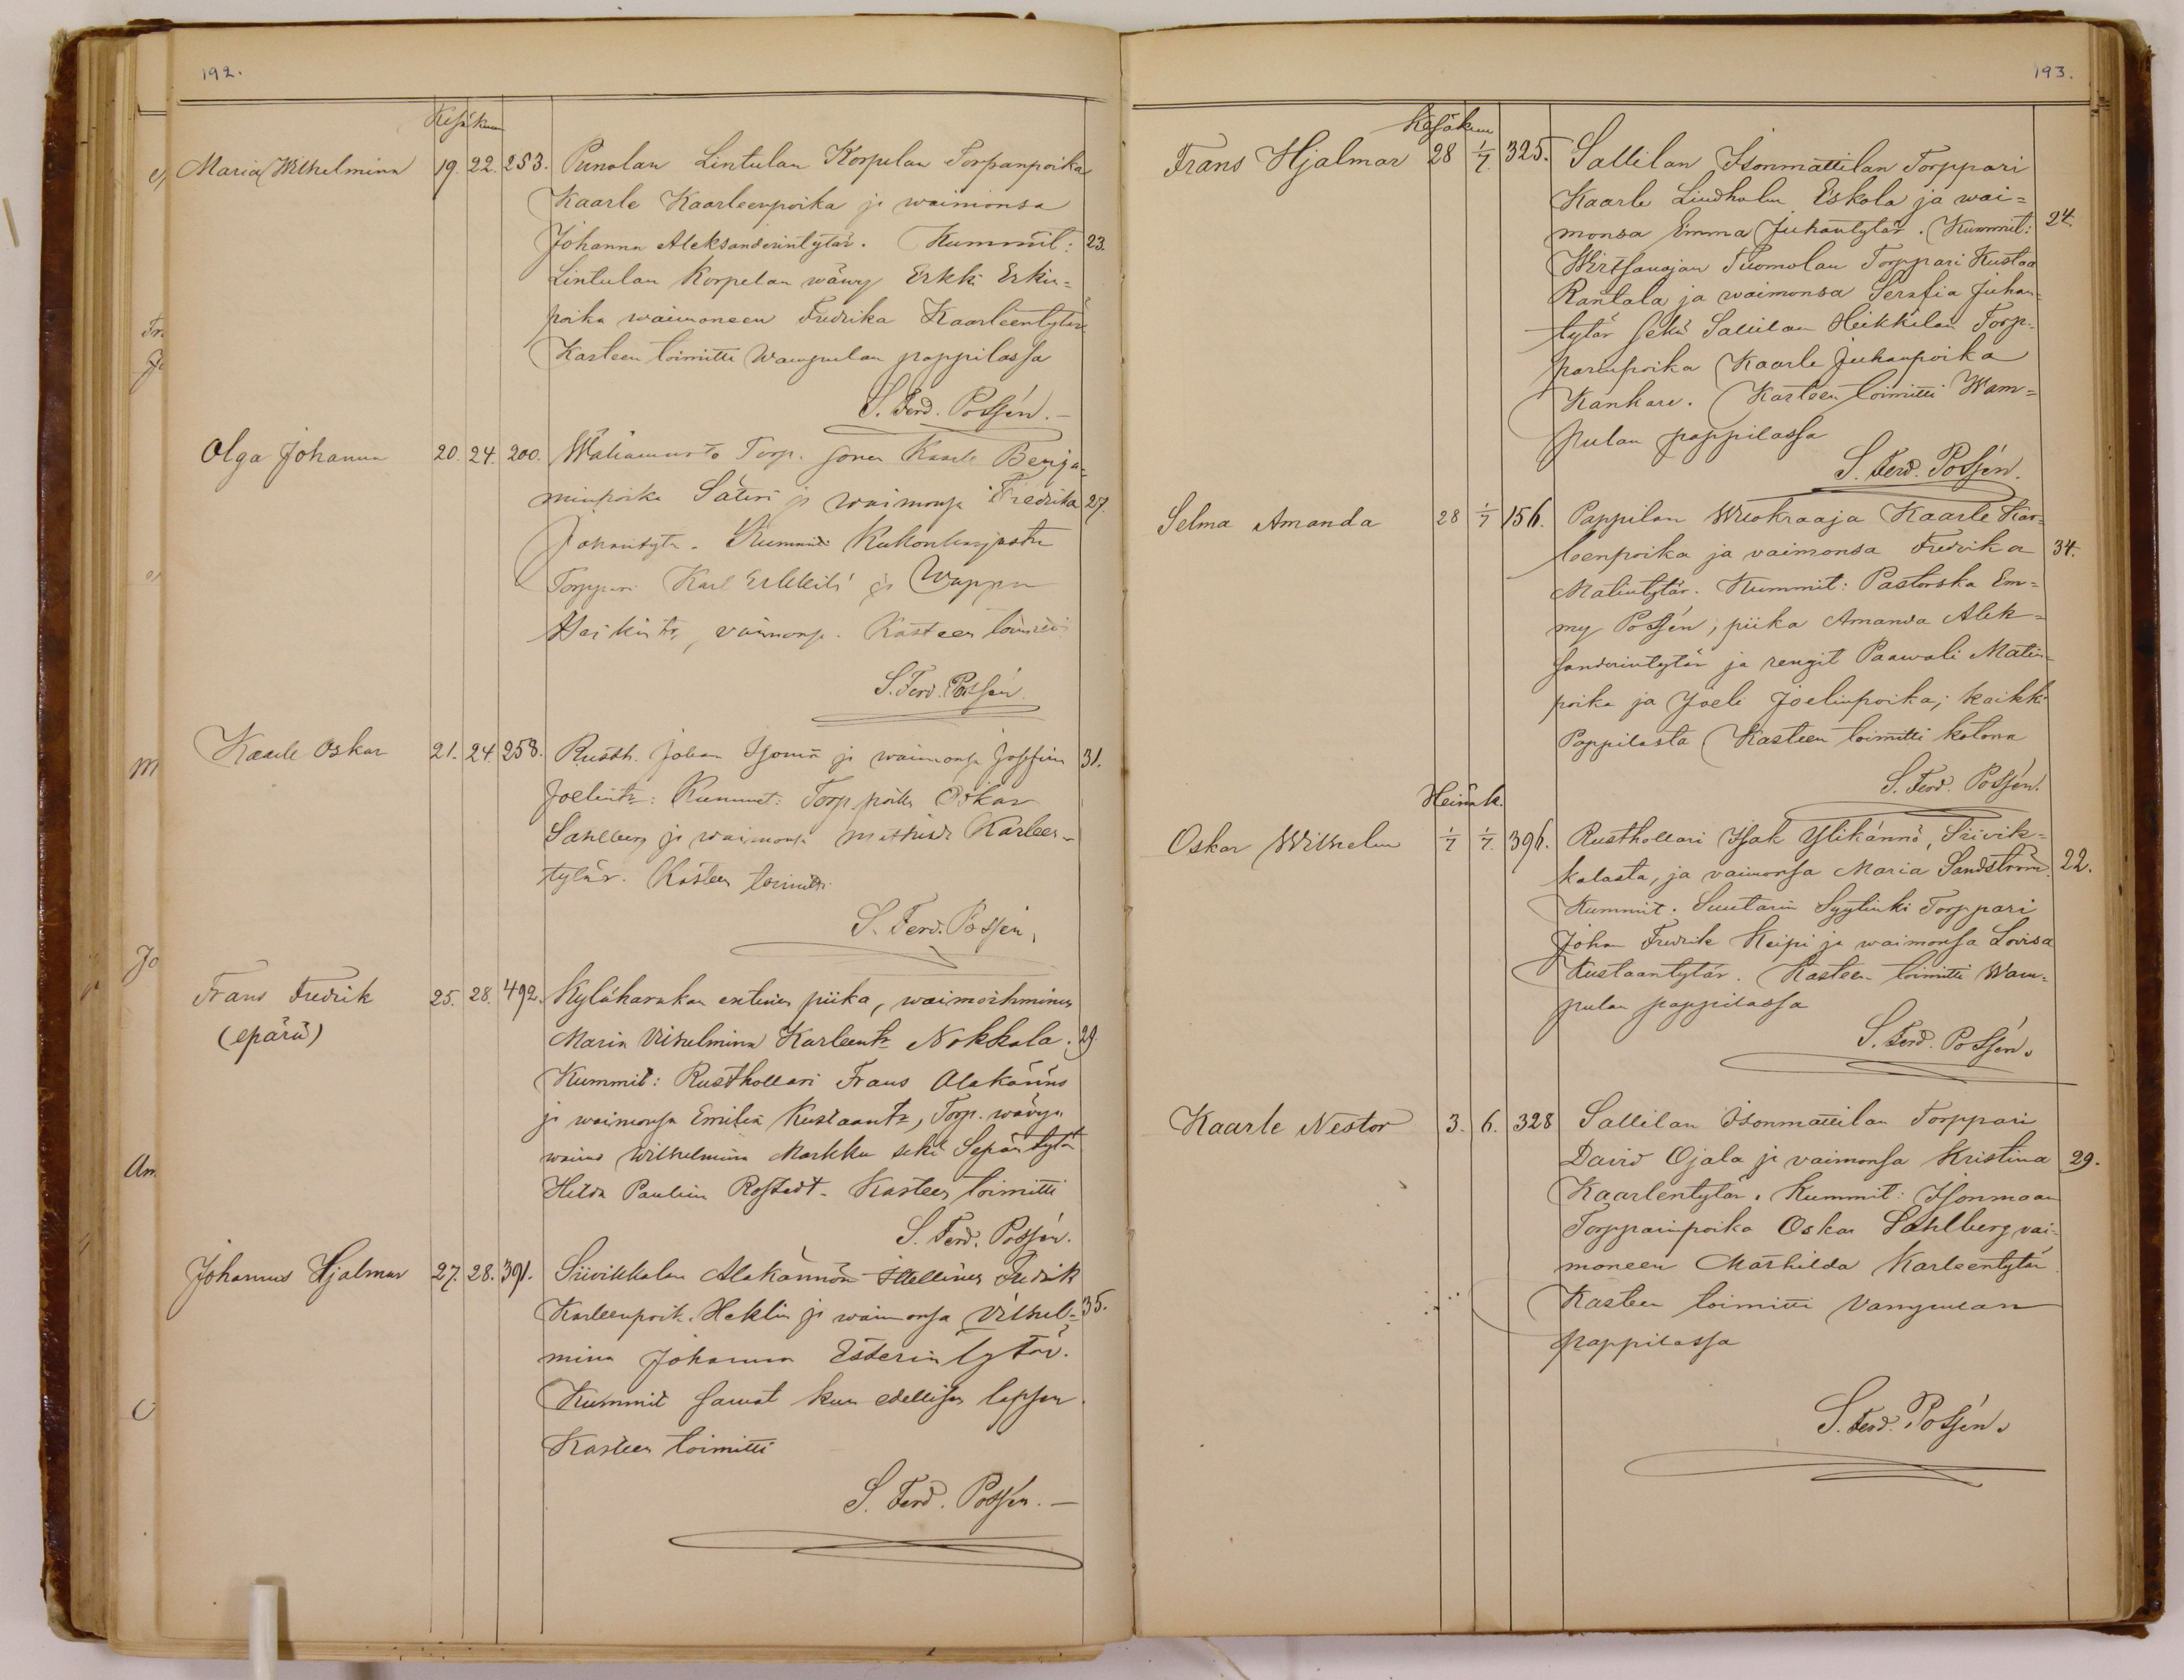 192.
Kesäkuu
Maria Wilhelmina 19. 22. 253. Punolan Lintulan Korpelan Torpanpoika
Kaarle Kaarleenpoika ja waimonsa
Johanna Aleksanderintytär. Kummit: 23.
Lintulan Korpelan wäwy Erkki Erkin=
poika waimoneen Fredrika Kaarleentytär
Kasteen toimitti Wampulan pappilassa
S. Ferd. Possén.
Olga Johanna 20. 24. 200. Torp. Kaarle Benja=
minpoika Säteri ja waimonsa Fredrika 27.
Kummit
Torppari Karl Erkkilä ja Wappu
vaimonsa. Kasteen toimitti
S. Ferd. Possén
Kaarle Oskar 21. 24. 258. Rusth. Johan ja waimonsa Josefina 31.
Joelintr: Kummit: Torp. poika Oskar
Sahlberg ja waimonsa Mathilda Karleen=
tytär. Kasteen toimitti
S. Ferd. Possén.
Frans Fredrik 25. 28. 492. Kyläkarhan entinen piika, waimoihminen
(epärä) Maria Vilhelmina Karleentr Nokkala. 29.
Kummit: Rusthollari Frans Alakännö
ja waimonsa Emilia Kustaantr, Torp. wäwyn
waimo Wilhelmina Markku sekä Sepäntytär
Hilda Paulina Rostedt. Kasteen toimitti
S. Ferd. Possén.
Johannes Hjalmar 27. 28. 391. Siivikkalan Alakännön Itellinen Fredrik
Karleenpoik. Heklin ja waimonsa Vilhel= 35.
mina Johanna Esterintytär.
Kummit samat kun edellisen lapsen.
Kasteen toimitti
S. Ferd. Possén.
193.
Kesäkuu
Frans Hjalmar 28 1/7. 325. Sallilan Isonmattilan Torppari
Kaarle Lindholm Eskola ja wai=
monsa Emma Juhantytär. Kummit: 24.
Wirtsanojan Tuomolan Torppari Kustaa
Rantala ja waimonsa Serafia Juhan=
tytär sekä Sallilan Heikkilän Torp=
parinpoika Kaarle Juhanpoika
Kankare. Kasteen toimitti Wam=
pulan pappilassa
S. Ferd. Possén.
Selma Amanda 28 1/7 156. Pappilan Wuokraaja Kaarle Kar=
leenpoika ja vaimonsa Fredrika 34.
Matintytär. Kummit: Pastorska Em=
my Possén, piika Amanda Alek=
sanderintytär ja rengit Paawali Matin=
poika ja Joeli Joelinpoika; kaikki
Pappilasta Kasteen toimitti kotona
S. Ferd. Possén.
Heinäk.
Oskar Wilhelm 1/7 1/7. 396. Rusthollari Isak Ylikännö, Siivik=
kalasta, ja vaimonsa Maria Sandström. 22.
Kummit: Suutarin Syytinki Torppari
Johan Fredrik Keipi ja waimonsa Lovisa
Kustaantytär. Kasteen toimitti Wam=
pulan pappilassa
S. Ferd. Possén.
Kaarle Nestor 3. 6. 328 Sallilan Isonmattilan Torppari
David Ojala ja vaimonsa Kristina 29.
Kaarlentytär. Kummit: Isonmaan
Torpparinpoika Oskar Sahlberg vai=
moneen Mathilda Karleentytär
Kasteen toimitti Vampulan
pappilassa
S. Ferd. Possén.